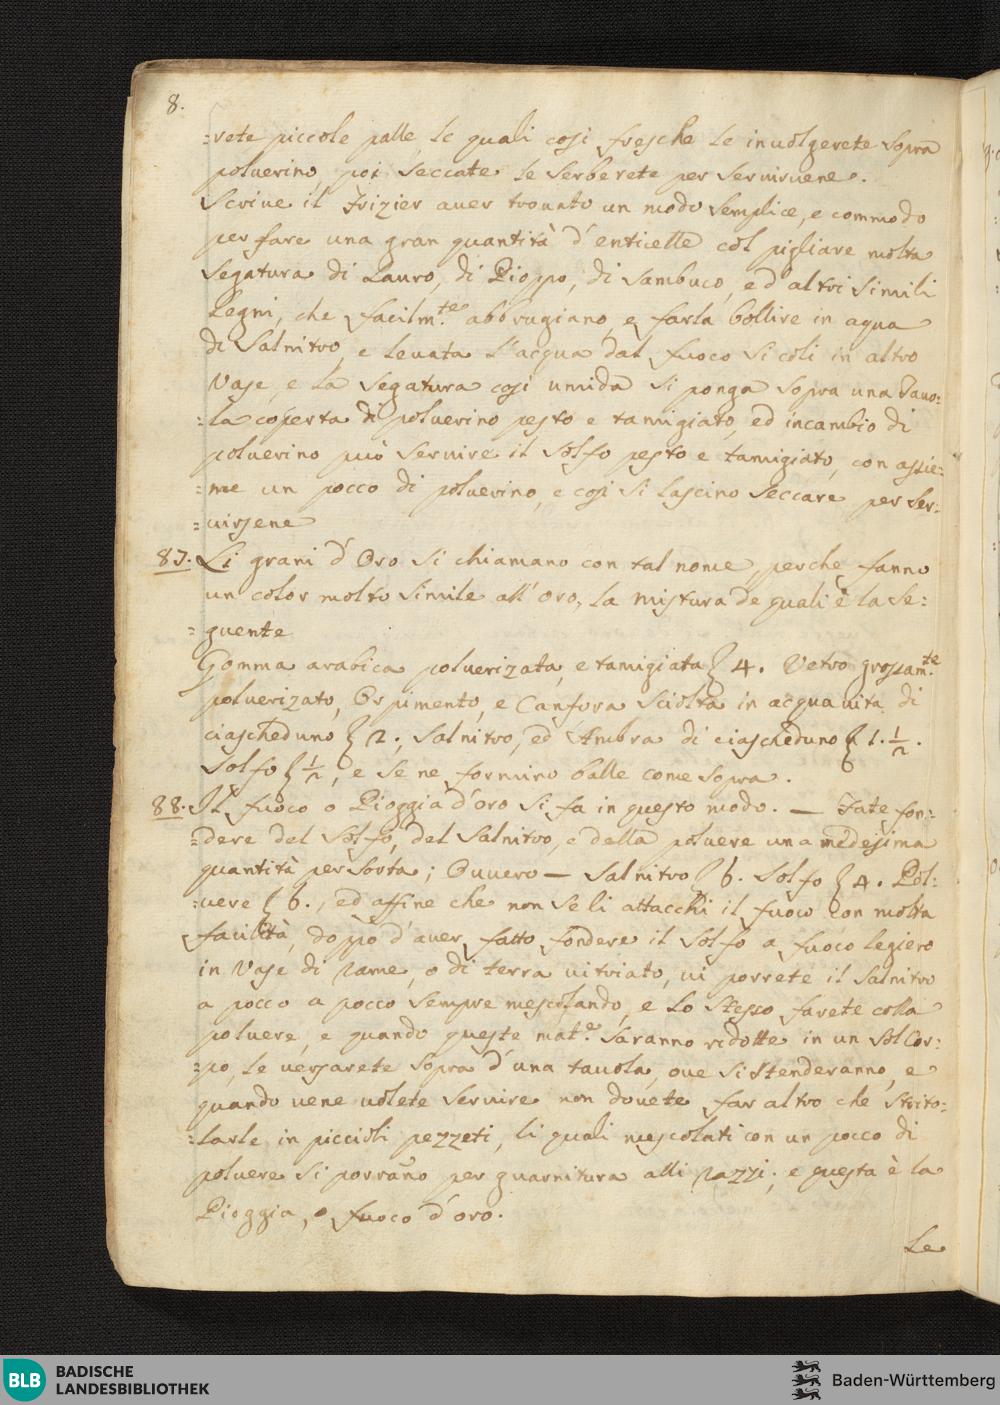 8.
=rete piccole palle, le quali così fresche le inuolgerete sopra
poluerino, poi seccate le serberete per seruiruene.
Scriue il Frizier auer trouato un modo semplice, e commodo
per fare una gran quantità d'enticelle col pigliare molta
Segatura di Lauro, di Pioppo, di Sambuco, ed altri simili
Legni, che facilm.te abbrugiano, e farla bollire in aqua
di Salnitro, e leuata l'acqua dal fuoco si coli in altro
Vase, e la segatura così umida si ponga sopra una Tauo:
=la coperta di poluerino pesto e tamigiato, ed incambio di
poluerino può seruire il Solfo pesto e tamigiato, con assie:
=me un pocco di poluerino, e così si lascino seccare per ser:
=uirsene
87. Li grani d'Oro si chiamano con tal nome, perche fanno
un color molto simile all'oro, la mistura de quali è la se:
=guente
Gomma arabica poluerizata, e tamigiata ℥ 4. Vetro grossam.te
poluerizato, Orpimento, e Canfora sciolta in acquauita di
ciascheduno ℥ 2., Salnitro, ed Ambra di ciascheduno ℥ 1. 1/2.
Solfo ℥ 1/2, e se ne formino balle come sopra.
88. Il fuoco o Pioggia d'oro si fa in questo modo. — Fate fon:
=dere del Solfo, del Salnitro, e della poluere una medesima
quantità per sorta; Ouuero — Salnitro ℥ 6. Solfo ℥ 4. Pol:
=uere ℥ 6., ed affine che non se li attacchi il fuoco con molta
facilità, doppo d'auer fatto fondere il Solfo a fuoco legiero
in Vase di rame, o di terra uitriato, ui porrete il Salnitro
a pocco a pocco sempre mescolando, e lo stesso farete colla
poluere, e quando queste mat.e saranno ridotte in un sol Cor:
=po, le uersarete sopra d'una tauola, oue si stenderanno, e
quando uene uolete seruire non douete far altro che strito:
=larle in piccioli pezzeti, li quali mescolati con un pocco di
poluere si porrano per guarnitura alli razzi; e questa è la
Pioggia, o fuoco d'oro.
Le
BLB
BADISCHE
LANDESBIBLIOTHEK
Baden-Württemberg